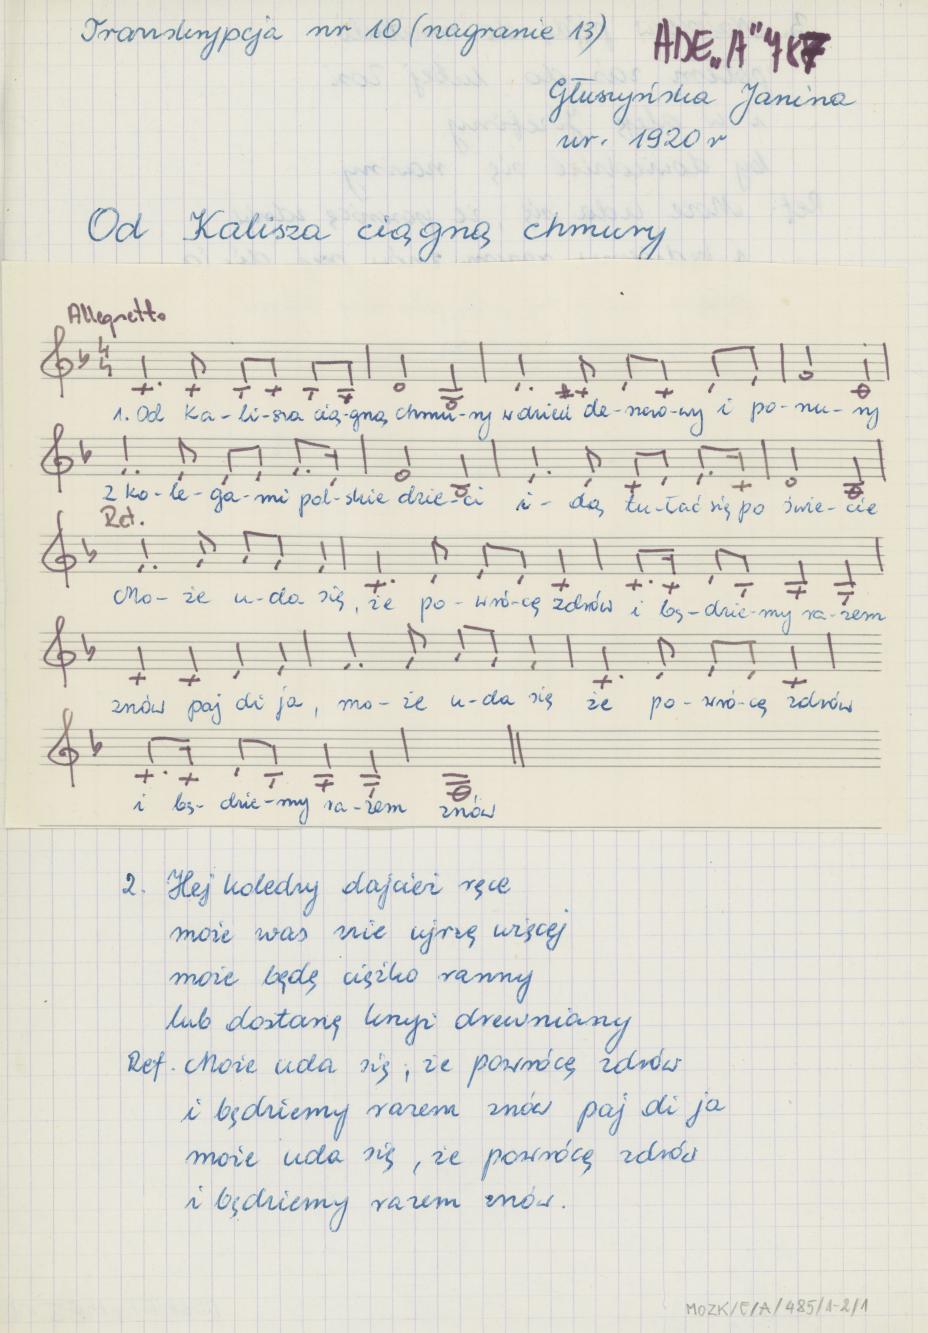 Transkrypcja nr 10 (nagranie 13)
ADE„A" 487
Głuszyńska Janina
ur. 1920 r
Od Kalisza ciągną chmury
Allegretto
1. Od Ka-li-sza cią-gną chmu-ry w dzień de-szczo-wy i po-nu-ry
z ko-le-ga-mi pol-skie dzie-ci i-dą tu-łać się po świe-cie
Ref.
Mo-że u-da się, że po-wró-cę zdrów i bę-dzie-my ra-zem
znów paj di ja, mo-że u-da się że po-wró-cę zdrów
i bę-dzie-my ra-zem znów
2. Hej koledzy dajcież ręce
może was nie ujrzę więcej
może będę ciężko ranny
lub dostanę krzyż drewniany
Ref. Może uda się, że powrócę zdrów
i będziemy razem znów paj di ja
może uda się, że powrócę zdrów
i będziemy razem znów.
MOZK/E/A/485/1-2/1